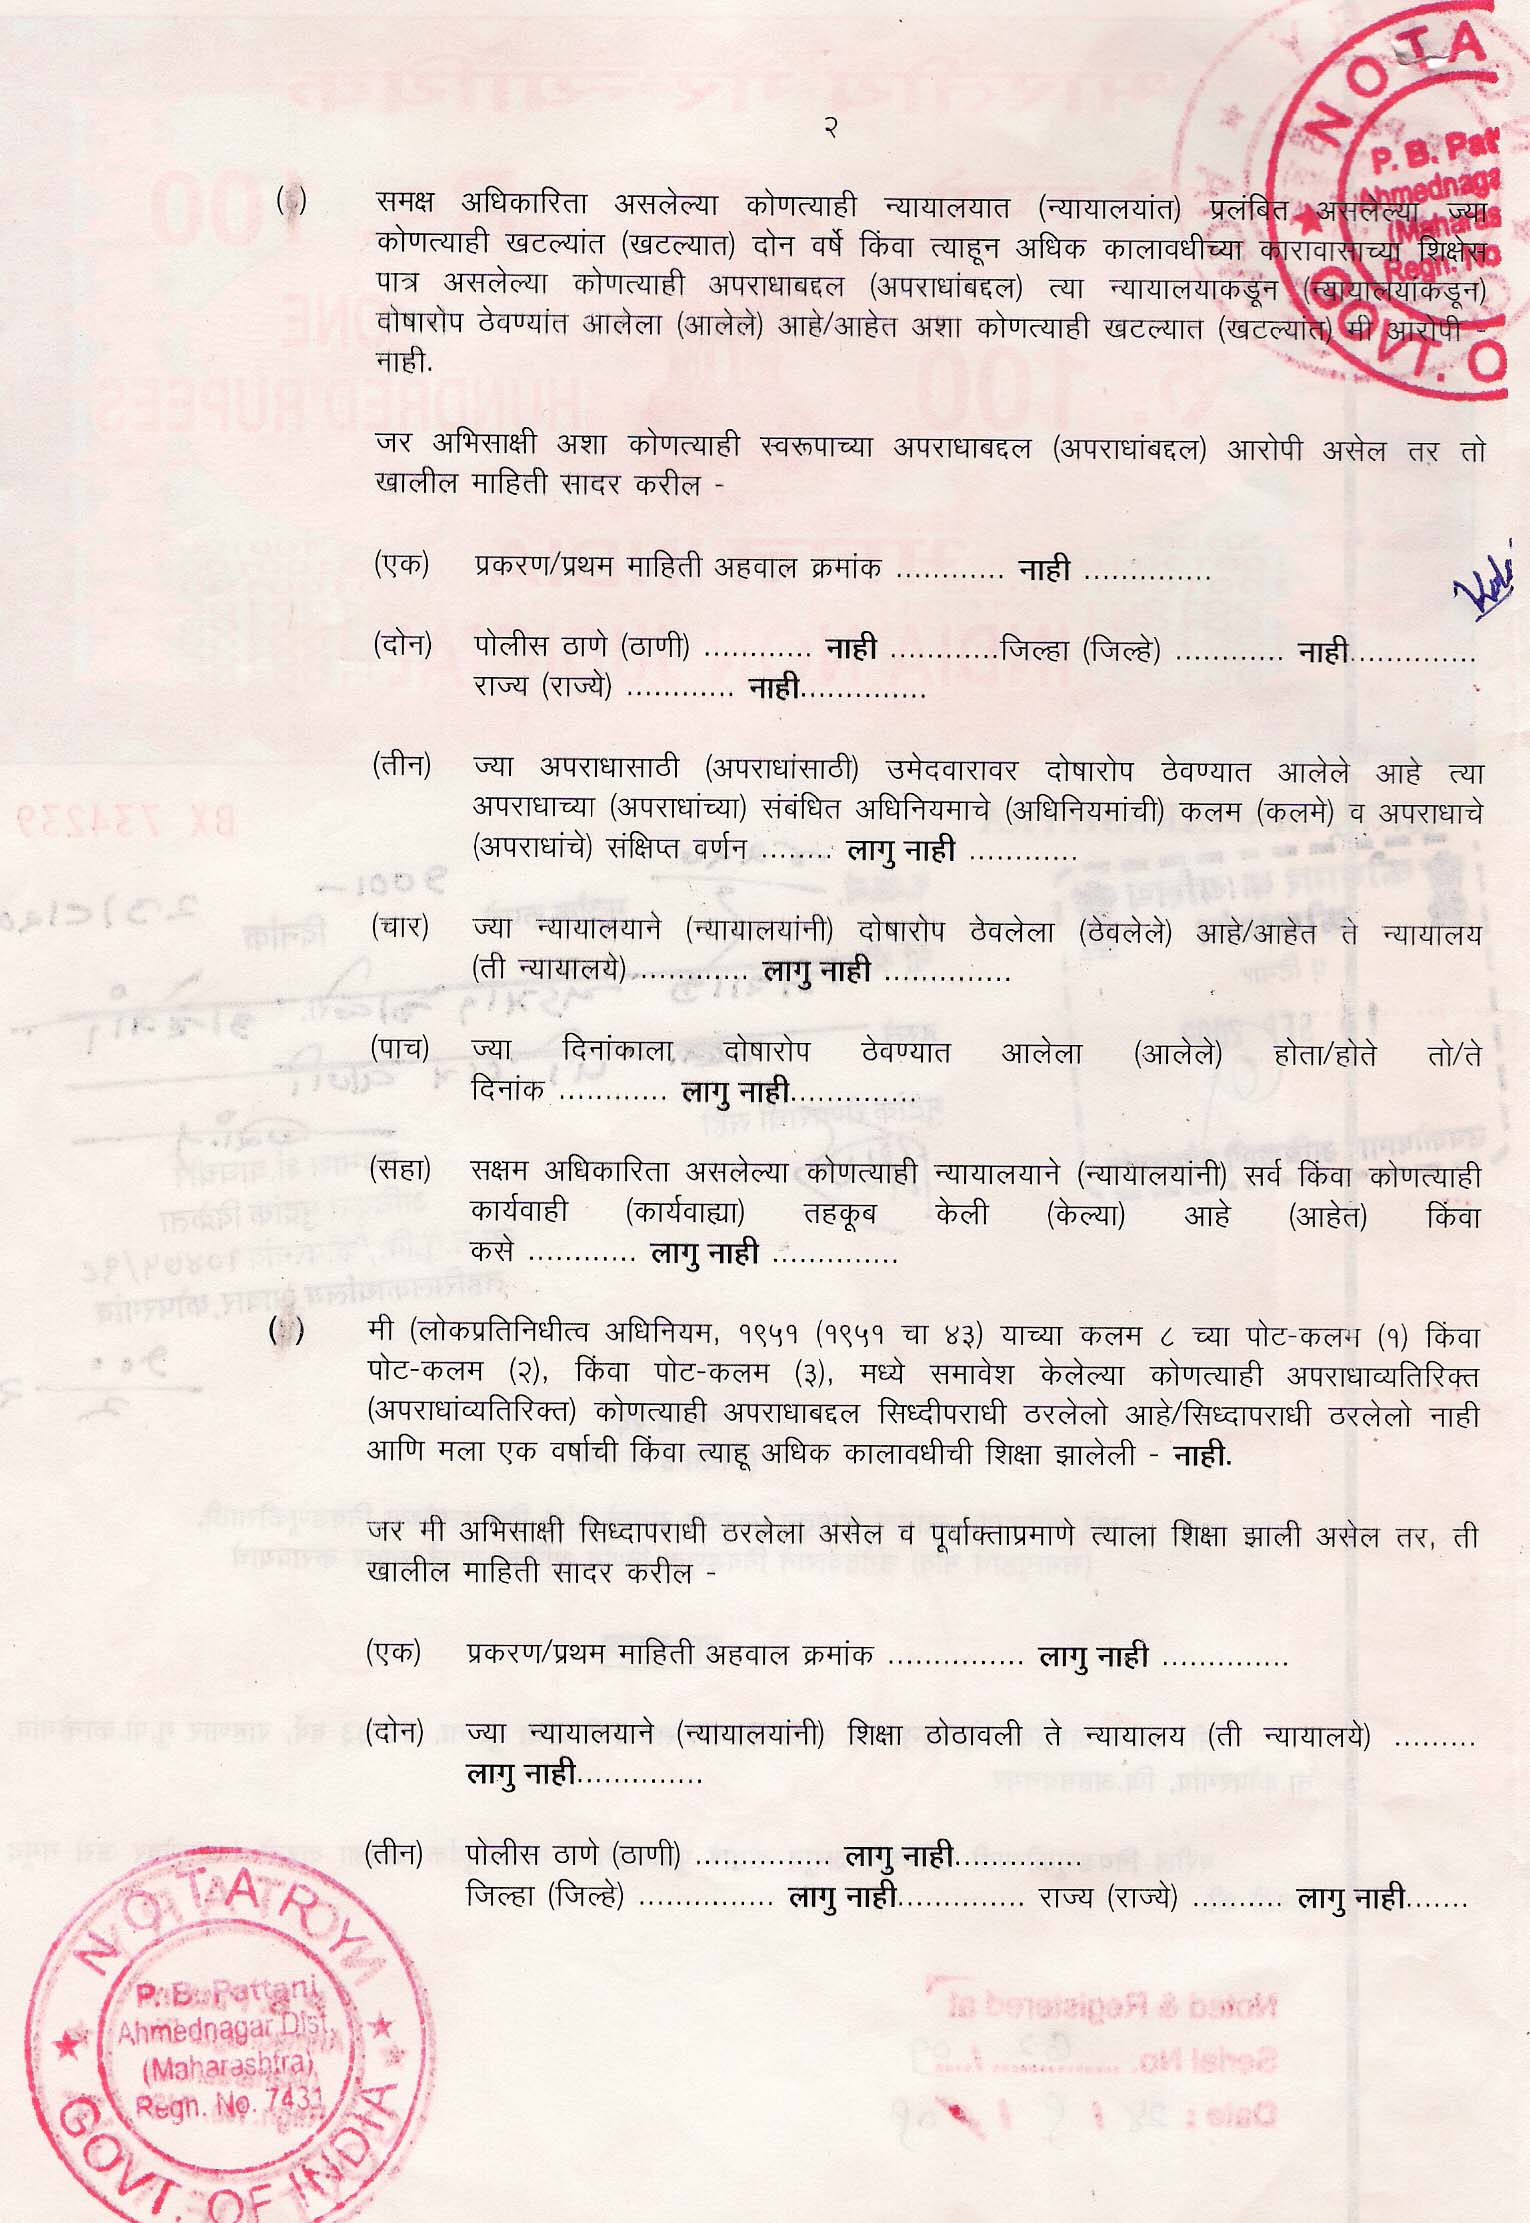 २
( ) समक्ष अधिकारिता असलेल्या कोणत्याही न्यायालयात (न्यायालयांत) प्रलंबित असलेल्या ज्या
कोणत्याही खटल्यांत (खटल्यात) दोन वर्षे किंवा त्याहून अधिक कालावधीच्या कारावासाच्या शिक्षेस
पात्र असलेल्या कोणत्याही अपराधाबद्दल (अपराधांबद्दल) त्या न्यायालयाकडून (न्यायालयांकडून)
दोषारोप ठेवण्यांत आलेला (आलेले) आहे/आहेत अशा कोणत्याही खटल्यात (खटल्यांत) मी आरोपी -
नाही.
जर अभिसाक्षी अशा कोणत्याही स्वरूपाच्या अपराधाबद्दल (अपराधांबद्दल) आरोपी असेल तर तो
खालील माहिती सादर करील -
(एक) प्रकरण/प्रथम माहिती अहवाल क्रमांक ............ नाही ..............
(दोन) पोलीस ठाणे (ठाणी) ............ नाही ............जिल्हा (जिल्हे) ............ नाही..............
राज्य (राज्ये) ............ नाही..............
(तीन) ज्या अपराधासाठी (अपराधांसाठी) उमेदवारावर दोषारोप ठेवण्यात आलेले आहे त्या
अपराधाच्या (अपराधांच्या) संबंधित अधिनियमाचे (अधिनियमांची) कलम (कलमे) व अपराधाचे
(अपराधांचे) संक्षिप्त वर्णन ........ लागु नाही ............
(चार) ज्या न्यायालयाने (न्यायालयांनी) दोषारोप ठेवलेला (ठेवलेले) आहे/आहेत ते न्यायालय
(ती न्यायालये) ............ लागु नाही ..............
(पाच) ज्या दिनांकाला दोषारोप ठेवण्यात आलेला (आलेले) होता/होते तो/ते
दिनांक ............ लागु नाही..............
(सहा) सक्षम अधिकारिता असलेल्या कोणत्याही न्यायालयाने (न्यायालयांनी) सर्व किंवा कोणत्याही
कार्यवाही (कार्यवाह्या) तहकूब केली (केल्या) आहे (आहेत) किंवा
कसे ............ लागु नाही ..............
( ) मी (लोकप्रतिनिधीत्व अधिनियम, १९५१ (१९५१ चा ४३) याच्या कलम ८ च्या पोट-कलम (१) किंवा
पोट-कलम (२), किंवा पोट-कलम (३), मध्ये समावेश केलेल्या कोणत्याही अपराधाव्यतिरिक्त
(अपराधांव्यतिरिक्त) कोणत्याही अपराधाबद्दल सिध्दीपराधी ठरलेलो आहे/सिध्दापराधी ठरलेलो नाही
आणि मला एक वर्षाची किंवा त्याहू अधिक कालावधीची शिक्षा झालेली - नाही.
जर मी अभिसाक्षी सिध्दापराधी ठरलेला असेल व पूर्वाक्ताप्रमाणे त्याला शिक्षा झाली असेल तर, ती
खालील माहिती सादर करील -
(एक) प्रकरण/प्रथम माहिती अहवाल क्रमांक ............... लागु नाही ..............
(दोन) ज्या न्यायालयाने (न्यायालयांनी) शिक्षा ठोठावली ते न्यायालय (ती न्यायालये) .........
लागु नाही..............
(तीन) पोलीस ठाणे (ठाणी) ............... लागु नाही..............
जिल्हा (जिल्हे) ............... लागु नाही.............. राज्य (राज्ये) .......... लागु नाही.......
NOTARY
P. B. Pattani
Ahmednagar Dist.
(Maharashtra)
Regn. No. 7431
GOVT. OF INDIA
NOTA
P. B. Pat
Ahmednaga
(Maharas
Regn. No
GOVT. O